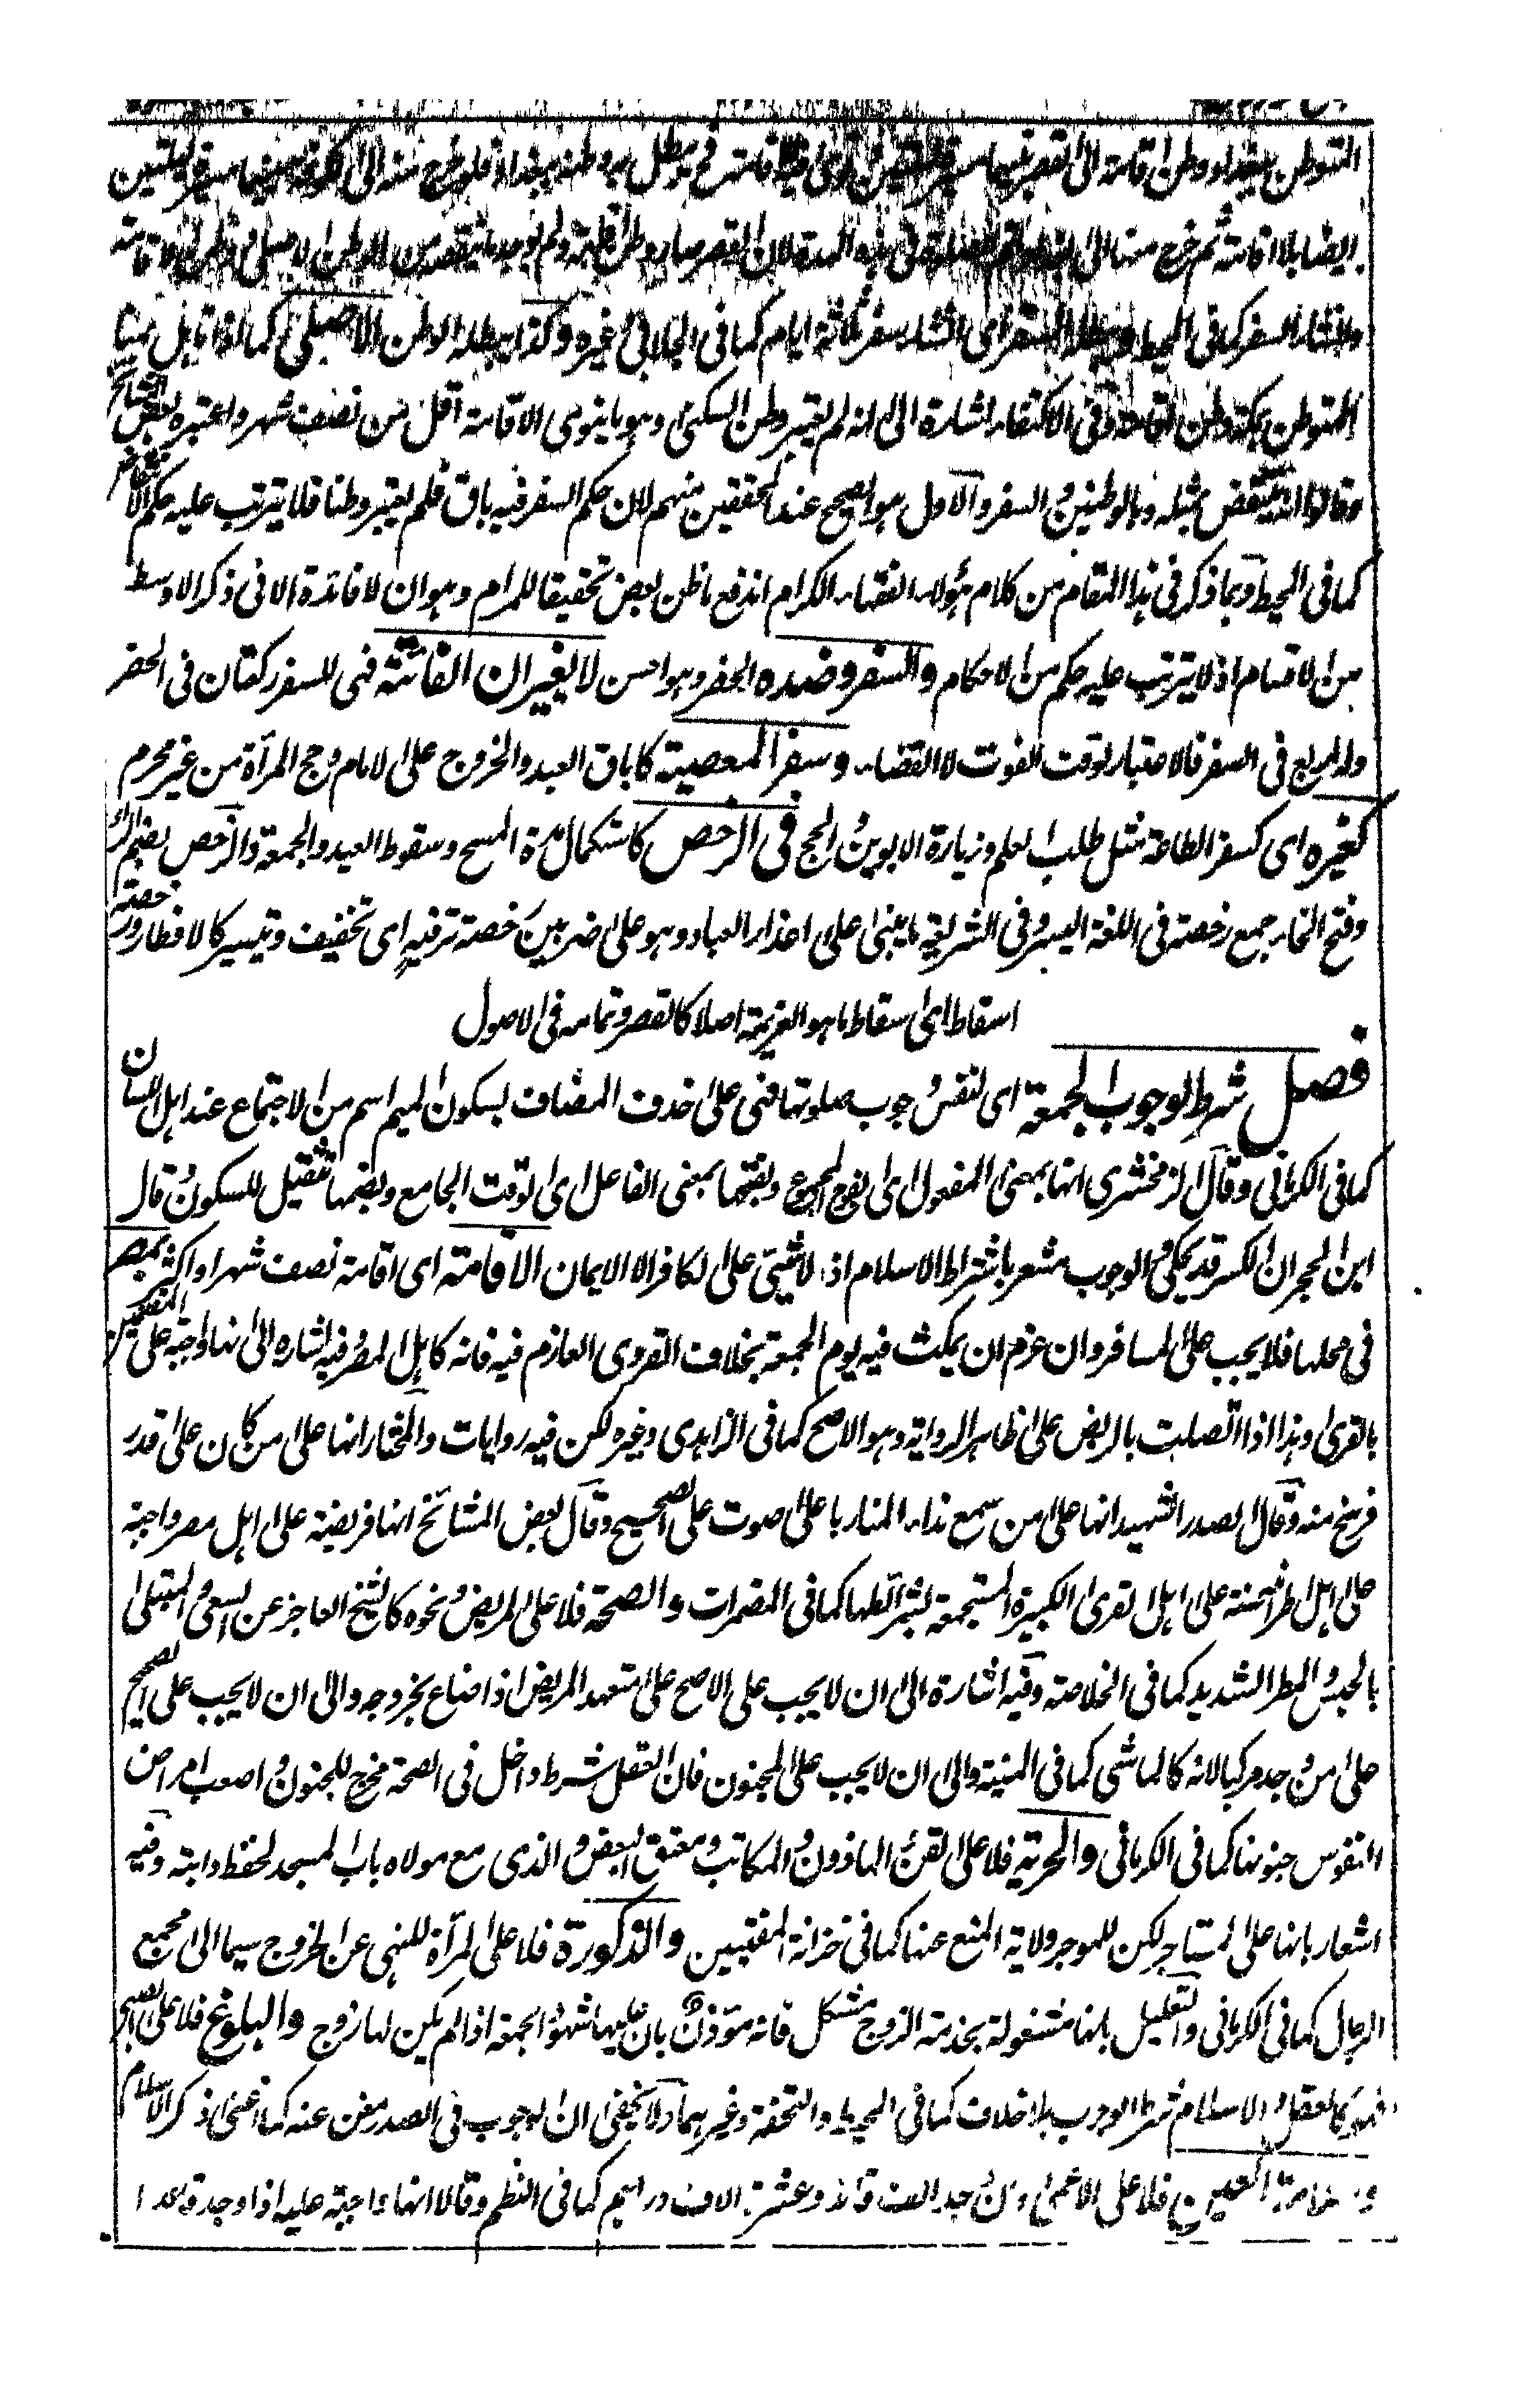 المتوطن ببغداد وطن اقامة الى القصر بينهما فلو خرج منه الى الكوفة
ايضا بلا اقامة ثم خرج منها الى هذه المدة لان القصر صار وطن اقامة ولم يوجد ما ينقضه من الوطن الاصلى وطن الاقامة
وانشاء السفر كما فى المحيط ويبطله السفر اى انشاء سفر ثلثة ايام كما فى الجلابى وغيره وكذا يبطله الوطن الاصلى كما اذا تاهل بمنا
المتوطن بمكة وطن اقامة وفى الاكتفاء اشارة الى انه لم يعتبر وطن السكنى وهو ما ينوى الاقامة اقل من نصف شهر واعتبره بعض المشائخ
وقالوا انه ينتقض بمثله وبالوطنين والسفر والاول هو الصحيح عند المحققين منهم لان حكم السفر فيه باق فلم يعتبر وطنا فلا يترتب عليه حكم الاقامة
كما فى المحيط وبما ذكر فى هذا المقام من كلام هؤلاء الفقهاء الكرام اندفع ما ظن بعض تحقيقا للمرام وهو ان لا فائدة الا فى ذكر الاوسط
من الاقسام اذ لا يترتب عليه حكم من الاحكام والسفر وضده الحضر وهو احسن لا يغيران الفائتة فهى للسفر ركعتان فى الحضر
واربع فى السفر فالاعتبار لوقت الفوت لا القضاء وسفر المعصية كاباق العبد والخروج على الامام وحج المرأة من غير محرم
كغيره اى كسفر الطاعة مثل طلب العلم وزيارة الابوين والحج فى الرخص كاستكمال مدة المسح وسقوط العيد والجمعة والرخص بضم الراء
وفتح الخاء جمع رخصة فى اللغة اليسر وفى الشريعة ما يبنى على اعذار العباد وهو على ضربين رخصة ترفيه اى تخفيف وتيسير كالافطار ورخصة
اسقاط اى اسقاط ما هو العزيمة اصلا كالقصر وتمامه فى الاصول
فصل شرط لوجوب الجمعة اى لنفس وجوب صلوتها فهى على حذف المضاف بسكون الميم اسم من الاجتماع عند اهل اللسان
كما فى الكرمانى وقال الزمخشرى انها بمعنى المفعول اى الفوج المجموع وبفتحها بمعنى الفاعل اى الوقت الجامع وبضمها تثقيل للسكون وقال
ابن الحجر ان الكسر قد يحكى والوجوب مشعر باشتراط الاسلام اذ لا شىء على الكافر الا الايمان الاقامة اى اقامة نصف شهر او اكثر بمصر
فى محلها فلا يجب على المسافر وان عزم ان يمكث فيه يوم الجمعة بخلاف القروى العازم فيه فانه كاهل المصر وفيه اشارة الى انها واجبة على المقيمين
بالقرى وهذا اذا اتصلت بالربض على ظاهر الرواية وهو الاصح كما فى الزاهدى وغيره لكن فيه روايات والمختار انها على من كان على قدر
فرسخ منه وقال الصدر الشهيد انها على من سمع نداء المنار باعلى صوت على الصحيح وقال بعض المشائخ انها فريضة على اهل مصر واجبة
على اهل اطرافه سنة على اهل القرى الكبيرة المستجمعة لشرائطها كما فى المضمرات والصحة فلا على المريض ونحوه كالشيخ العاجز عن السعى والمبتلى
بالحبس والمطر الشديد كما فى الخلاصة وفيه اشارة الى ان لا يجب على الاصح على متعهد المريض اذا ضاع بخروجه والى ان لا يجب على الصحيح
على من وجد مركبا لانه كالماشى كما فى المنية والى ان لا يجب على المجنون فان العقل شرط داخل فى الصحة مخرج للجنون واصعب امراض
النفوس جنونها كما فى الكرمانى والحرية فلا على القن والماذون والمكاتب ومعتق البعض والذى مع مولاه باب المسجد لحفظ دابته وفيه
اشعار بانها على المستاجر لكن للموجر ولاية المنع عنها كما فى خزانة المفتيين والذكورة فلا على المرأة للنهى عن الخروج سيما الى مجمع
الرجال كما فى الكرمانى والتعليل بانها مشغولة بخدمة الزوج مشكل فانه موذن بان عليها شهود الجمعة اذا لم يكن لها زوج والبلوغ فلا على الصبى
كالعقل والاسلام شرط الوجوب بلا خلاف كما فى والتحفة وغيرهما ولا يخفى ان الوجوب فى الصدر مغن عنه كما اغنى ذكر الاسلام
و سلامة العين فلا على الاعمى وان وجد الف قائد وعشرة الاف دراهم كما فى النظم وقالا انها واجبة عليه اذا وجد قائدا